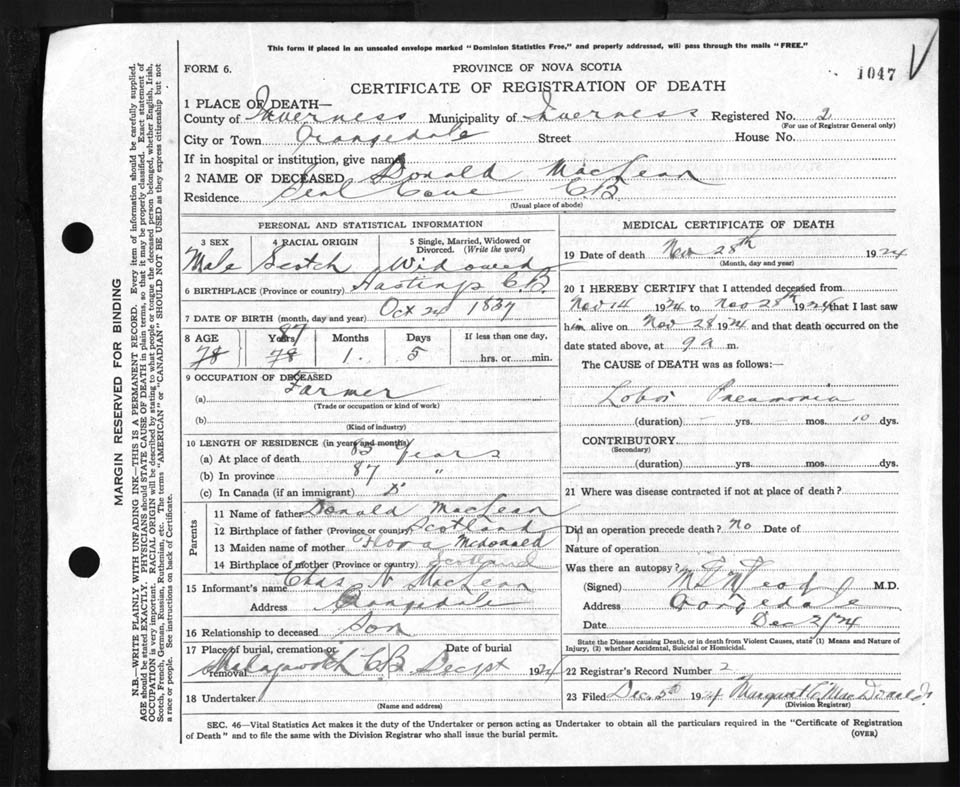 This form if placed in an unsealed envelope marked "Dominion Statistics Free," and properly addressed, will pass through the mails "FREE."
FORM 6. PROVINCE OF NOVA SCOTIA 1047
CERTIFICATE OF REGISTRATION OF DEATH
1 PLACE OF DEATH—
County of Inverness Municipality of Inverness Registered No. 2
(For use of Registrar General only)
City or Town Orangedale Street House No.
If in hospital or institution, give name
2 NAME OF DECEASED Donald MacLean
Residence Seal Cove CB
(Usual place of abode)
PERSONAL AND STATISTICAL INFORMATION
3 SEX 4 RACIAL ORIGIN 5 Single, Married, Widowed or Divorced. (Write the word)
Male Scotch Widowed
6 BIRTHPLACE (Province or country) Hastings C.B.
7 DATE OF BIRTH (month, day and year) Oct 24 1837
8 AGE Years Months Days If less than one day,
78 78 87 1 5 hrs. or min.
9 OCCUPATION OF DECEASED
(a) Farmer
(Trade or occupation or kind of work)
(b)
(Kind of industry)
10 LENGTH OF RESIDENCE (in years and months)
(a) At place of death years
(b) In province 87 "
(c) In Canada (if an immigrant)
Parents
11 Name of father Donald MacLean
12 Birthplace of father (Province or country) Scotland
13 Maiden name of mother Flora McDonald
14 Birthplace of mother (Province or country) Scotland
15 Informant's name Chas N MacLean
Address Orangedale
16 Relationship to deceased Son
17 Place of burial, cremation or removal Date of burial
Malagawatch CB Dec 1st 1924
18 Undertaker
(Name and address)
MEDICAL CERTIFICATE OF DEATH
19 Date of death Nov 28th 1924
(Month, day and year)
20 I HEREBY CERTIFY that I attended deceased from
Nov 14 1924 to Nov 28th 1924 that I last saw
him alive on Nov 28 1924 and that death occurred on the
date stated above, at 9 a m.
The CAUSE of DEATH was as follows:—
Lobar Pneumonia
(duration) yrs. mos. 10 dys.
CONTRIBUTORY
(Secondary)
(duration) yrs. mos. dys.
21 Where was disease contracted if not at place of death?
Did an operation precede death? No Date of
Nature of operation
Was there an autopsy?
(Signed) M.D.
Address Orangedale
Date Dec 2/24
State the Disease causing Death, or in death from Violent Causes, state (1) Means and Nature of Injury, (2) whether Accidental, Suicidal or Homicidal.
22 Registrar's Record Number 2
23 Filed Dec. 5th 1924 Margaret C. MacDonald
(Division Registrar)
SEC. 46—Vital Statistics Act makes it the duty of the Undertaker or person acting as Undertaker to obtain all the particulars required in the "Certificate of Registration
of Death" and to file the same with the Division Registrar who shall issue the burial permit.
(OVER)
MARGIN RESERVED FOR BINDING
N.B.—WRITE PLAINLY WITH UNFADING INK—THIS IS A PERMANENT RECORD. Every item of information should be carefully supplied.
AGE should be stated EXACTLY. PHYSICIANS should STATE CAUSE OF DEATH in plain terms, so that it may be properly classified. Exact statement of
OCCUPATION is very important. RACIAL ORIGIN will be described by stating to what people or tongue the deceased person belonged, whether English, Irish,
Scotch, French, German, Russian, Ruthenian, etc. The terms "AMERICAN" or "CANADIAN" SHOULD NOT BE USED as they express citizenship but not
a race or people. See instructions on back of Certificate.